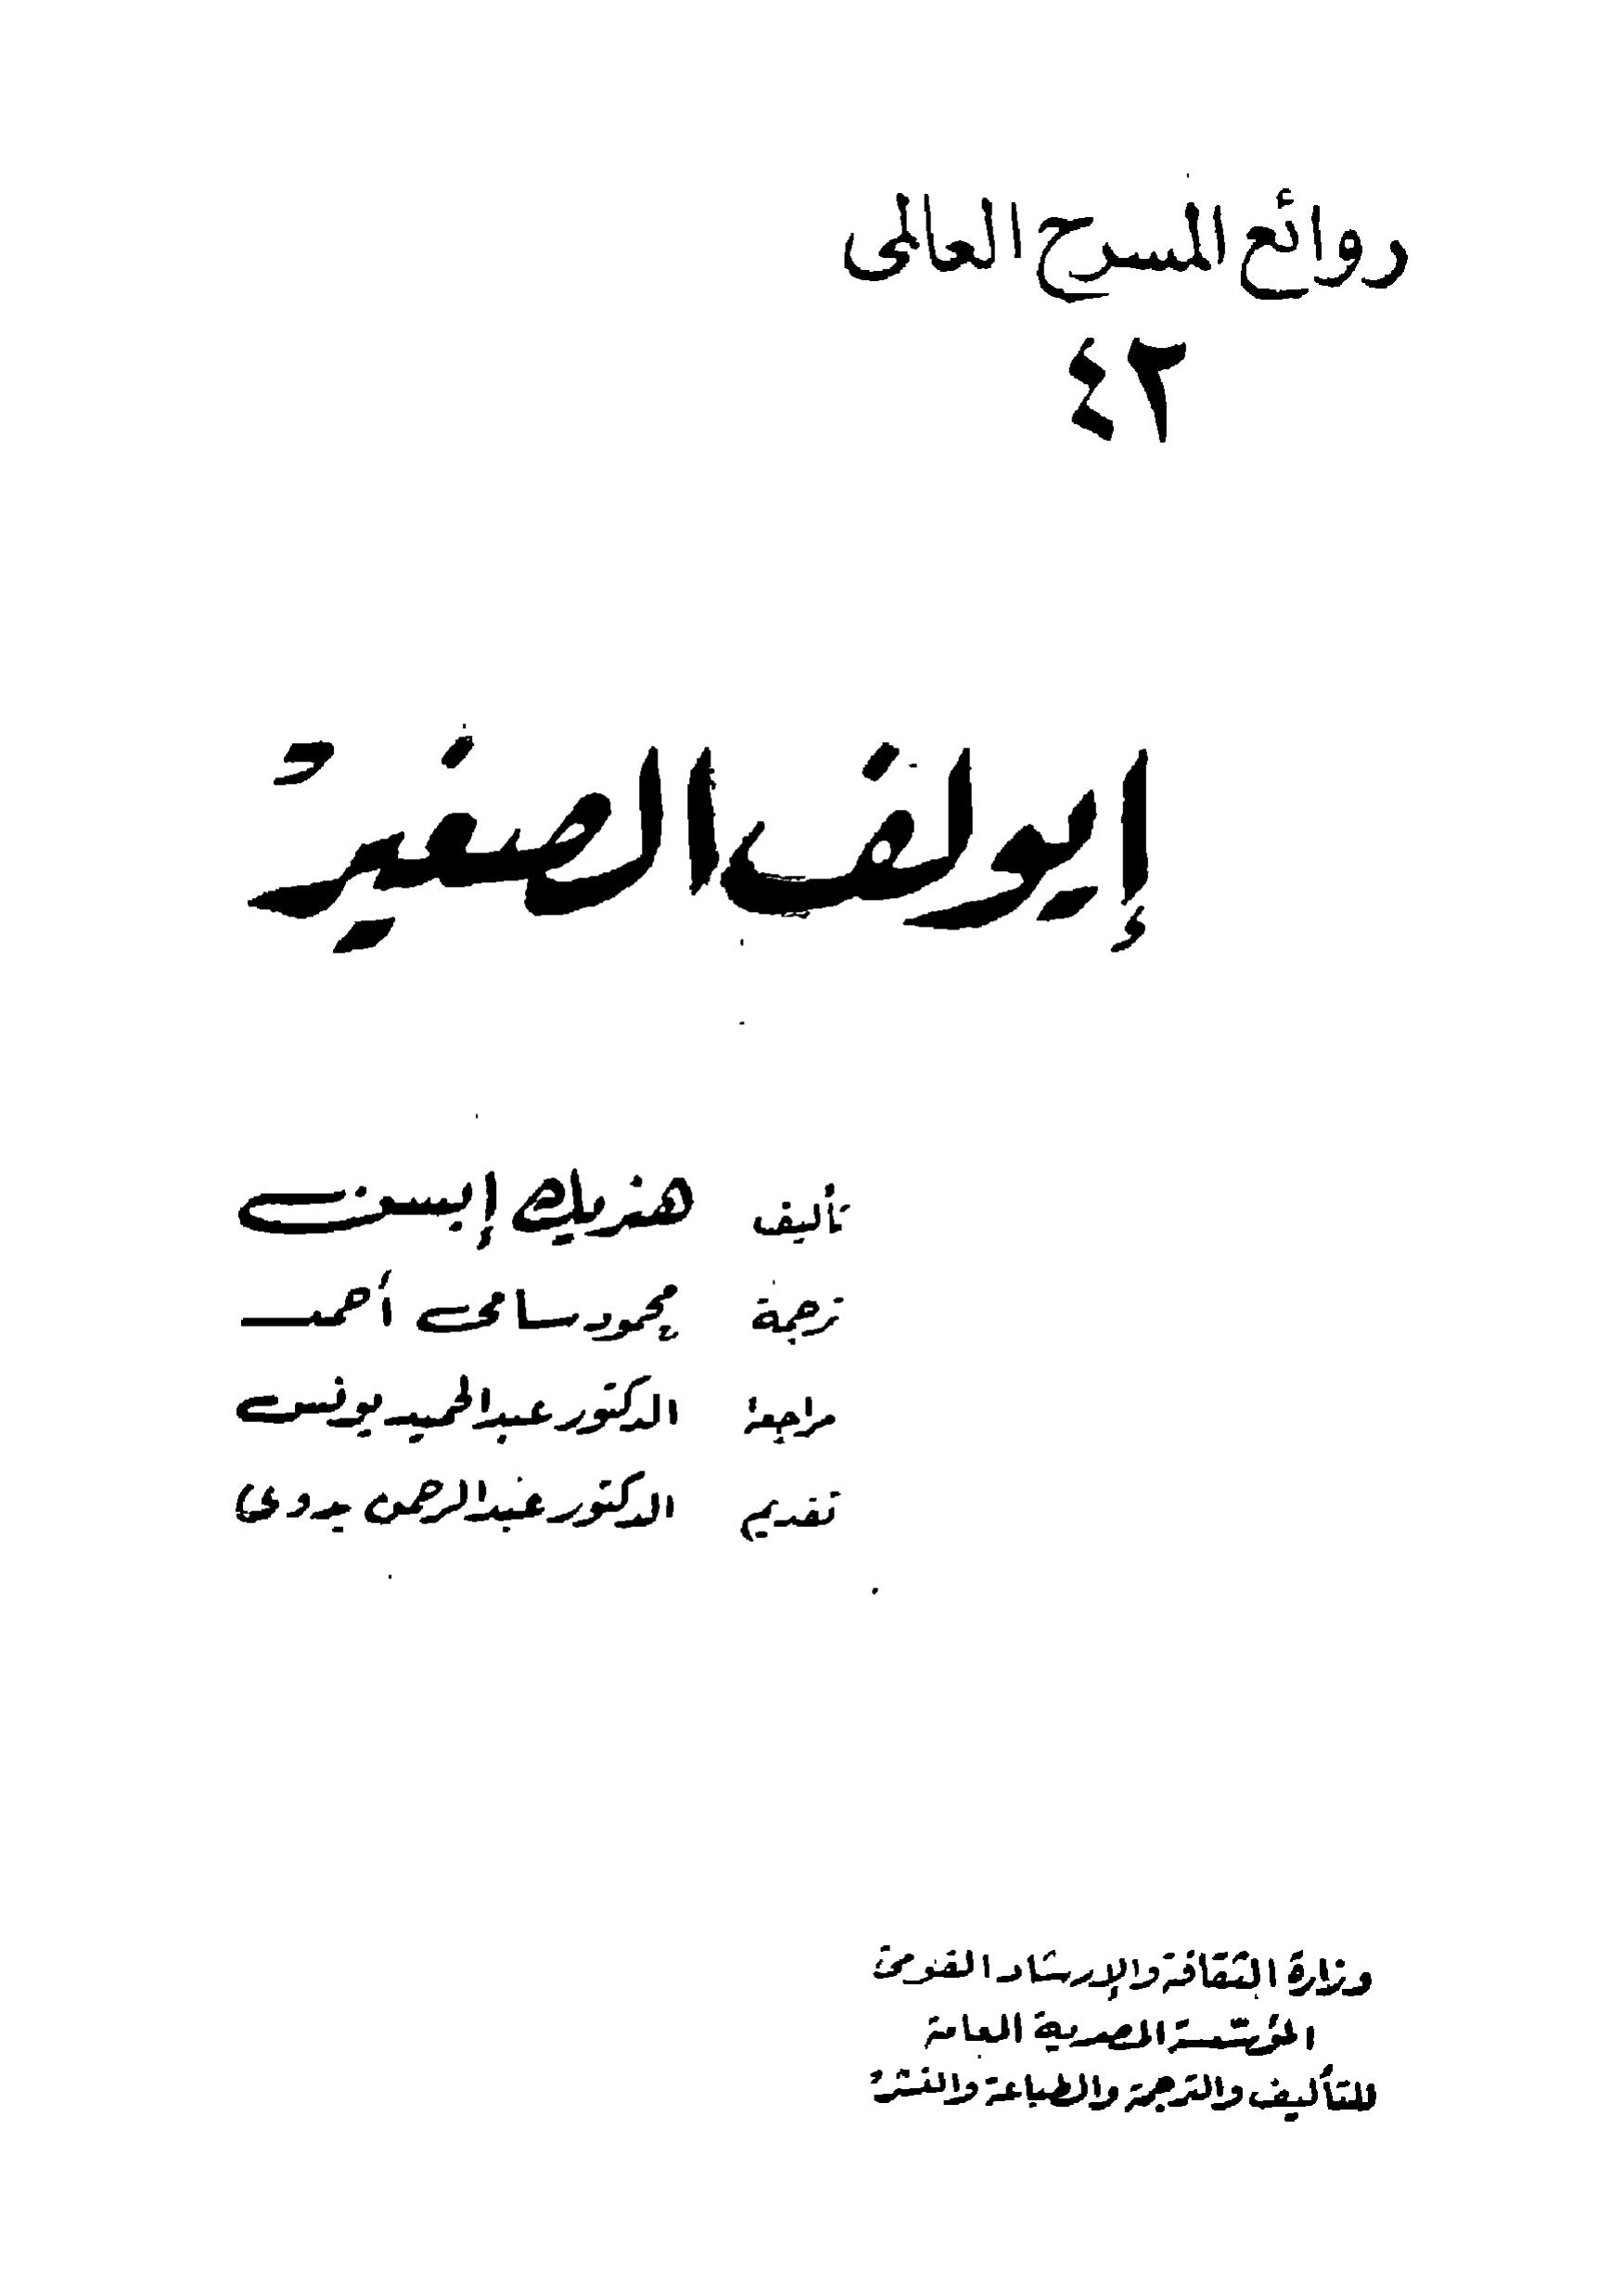 روائع المسرح العالمى
٤٢
إيولف الصغير
تأليف هنريك إبسن
ترجمة محمود سامى أحمد
مراجعة الدكتور عبد الحميد يونس
تقديم الدكتور عبد الرحمن بدوى
وزارة الثقافة والإرشاد القومى
المؤسسة المصرية العامة
للتأليف والترجمة والطباعة والنشر